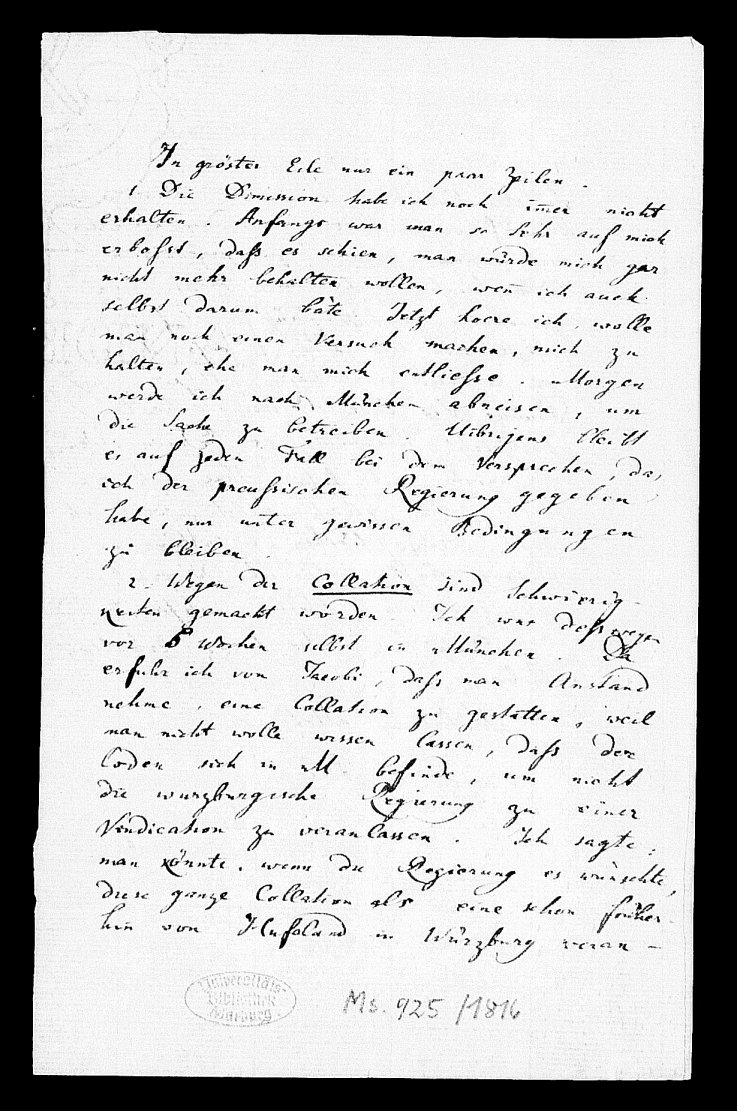 In gröster Eile nur ein paar Zeilen.
1 Die Dimission habe ich noch im̅er nicht
erhalten. Anfangs war man so sehr auf mich
erbosst, dass es schien, man würde mich gar
nicht mehr behalten wollen, wen̅ ich auch
selbst darum bäte Jetzt hoere ich, wolle
man noch einen Versuch machen, mich zu
halten, ehe man mich entliesse. Morgen
werde ich nach München abreisen, um
die Sache zu betreiben. Uibrigens bleibt
es auf jeden Fall bei dem Versprechen, das
ich der preussischen Regierung gegeben
habe, nur unter gewissen Bedingungen
zu bleiben.
2. Wegen der Collation sind Schwierig-
keiten gemacht worden. Ich war desswegen
vor Wochen selbst in München. Da
erfuhr ich von Jacobi, dass man Anstand
nehme, eine Collation zu gestatten, weil
man nicht wolle wissen lassen, dass der
Codex sich in M befinde, um nicht
die wurzburgische Regierung zu einer
Vindication zu veranlassen. Ich sagte:
man könnte, wenn die Regierung es wünschte,
diese ganze Collation als eine schon früher-
hin von Hufeland in Würzburg veran-
Universitäts-
Bibliothek
Marburg
Ms. 925/1816